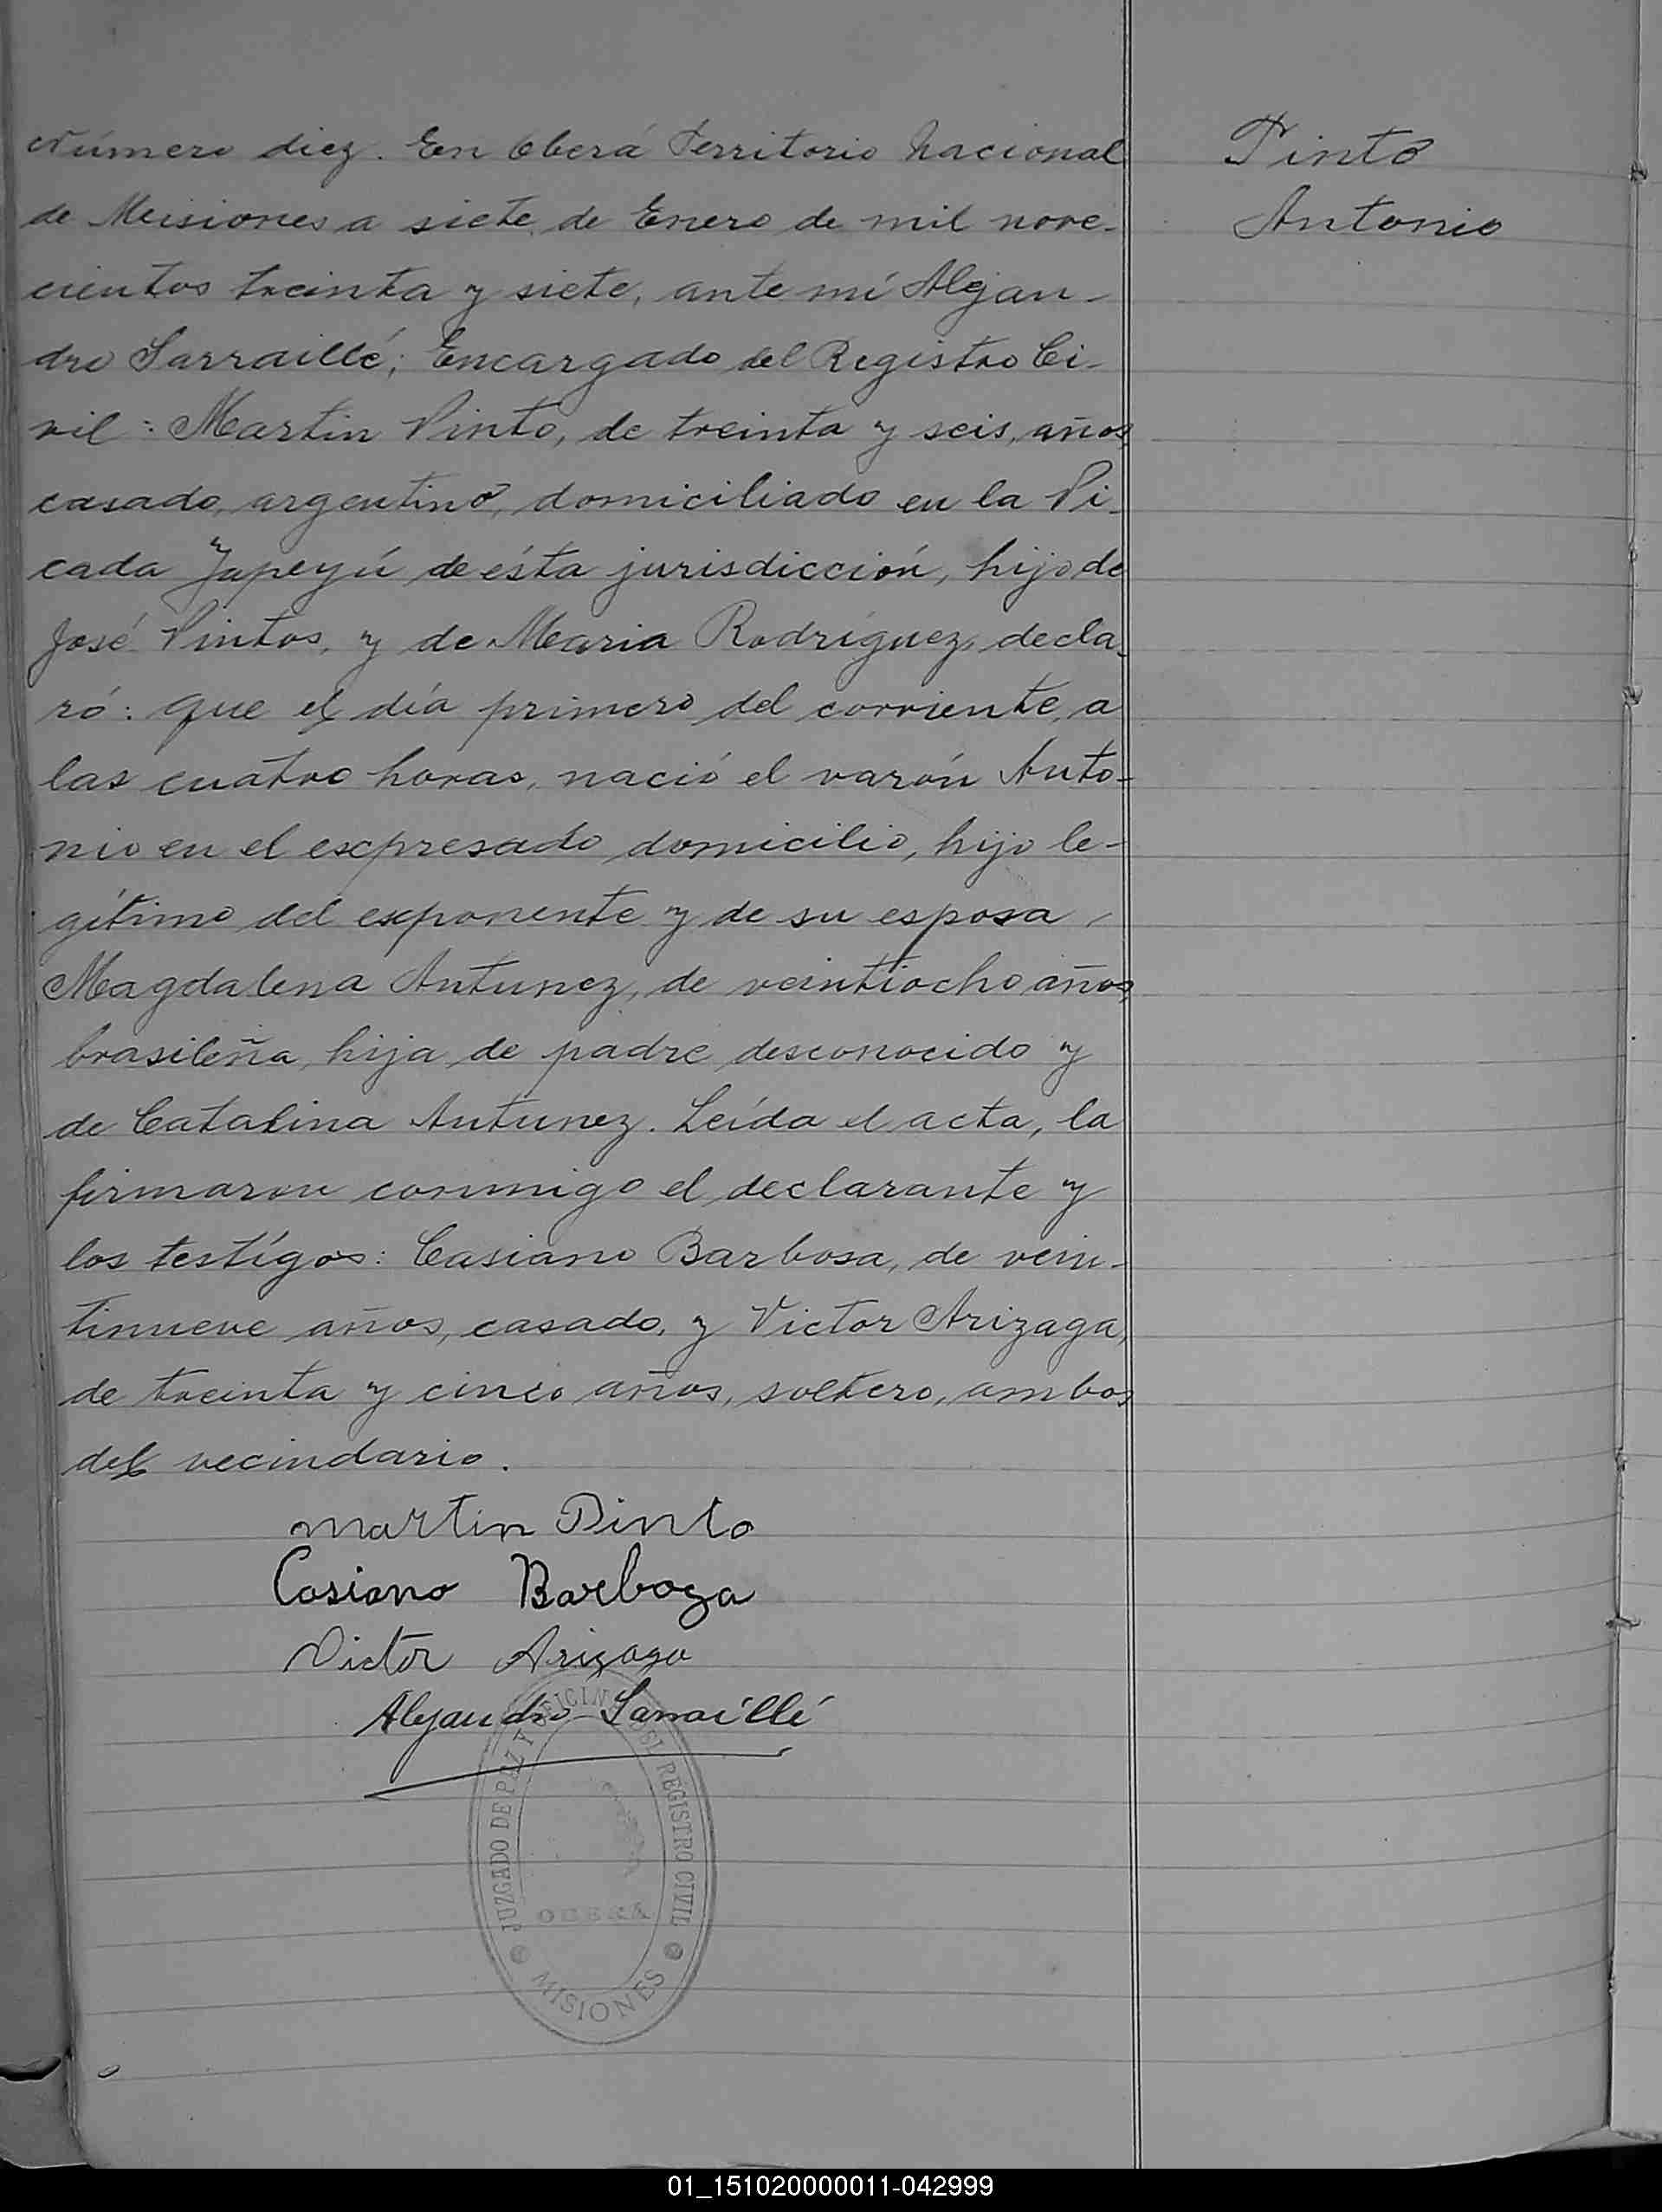 Número diez. En Oberá Territorio Nacional
de Misiones a siete de Enero de mil nove-
cientos treinta y siete, ante mí Alejan-
dro Sarraillé; Encargado del Registro Ci-
vil: Martin Pinto, de treinta y seis, años
casado, argentino, domiciliado en la Pi-
cada Yapeyú de ésta jurisdicción, hijo de
José Pintos, y de Maria Rodríguez, decla-
ró: que el día primero del corriente, a
las cuatro horas, nació el varón Anto-
nio en el expresado domicilio, hijo le-
gítimo del exponente y de su esposa,
Magdalena Antunez, de veintiocho años,
brasileña, hija de padre desconocido y
de Catalina Antunez. Leída el acta, la
firmaron conmigo el declarante y
los testígos: Casiano Barbosa, de vein-
tinueve años, casado, y Victor Arizaga,
de treinta y cinco años, soltero, ambos
del vecindario.
Pinto
Antonio
Martin Pinto
Casiano Barboza
Victor Arizaga
Alejandro Sarraillé
JUZGADO DE PAZ Y OFICINA DEL REGISTRO CIVIL
OBERA
MISIONES
01_151020000011-042999